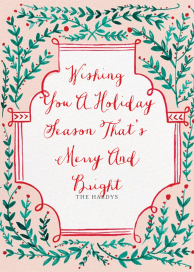 Wishing
You A Holiday
Season That's
Merry And
Bright
THE HARDYS